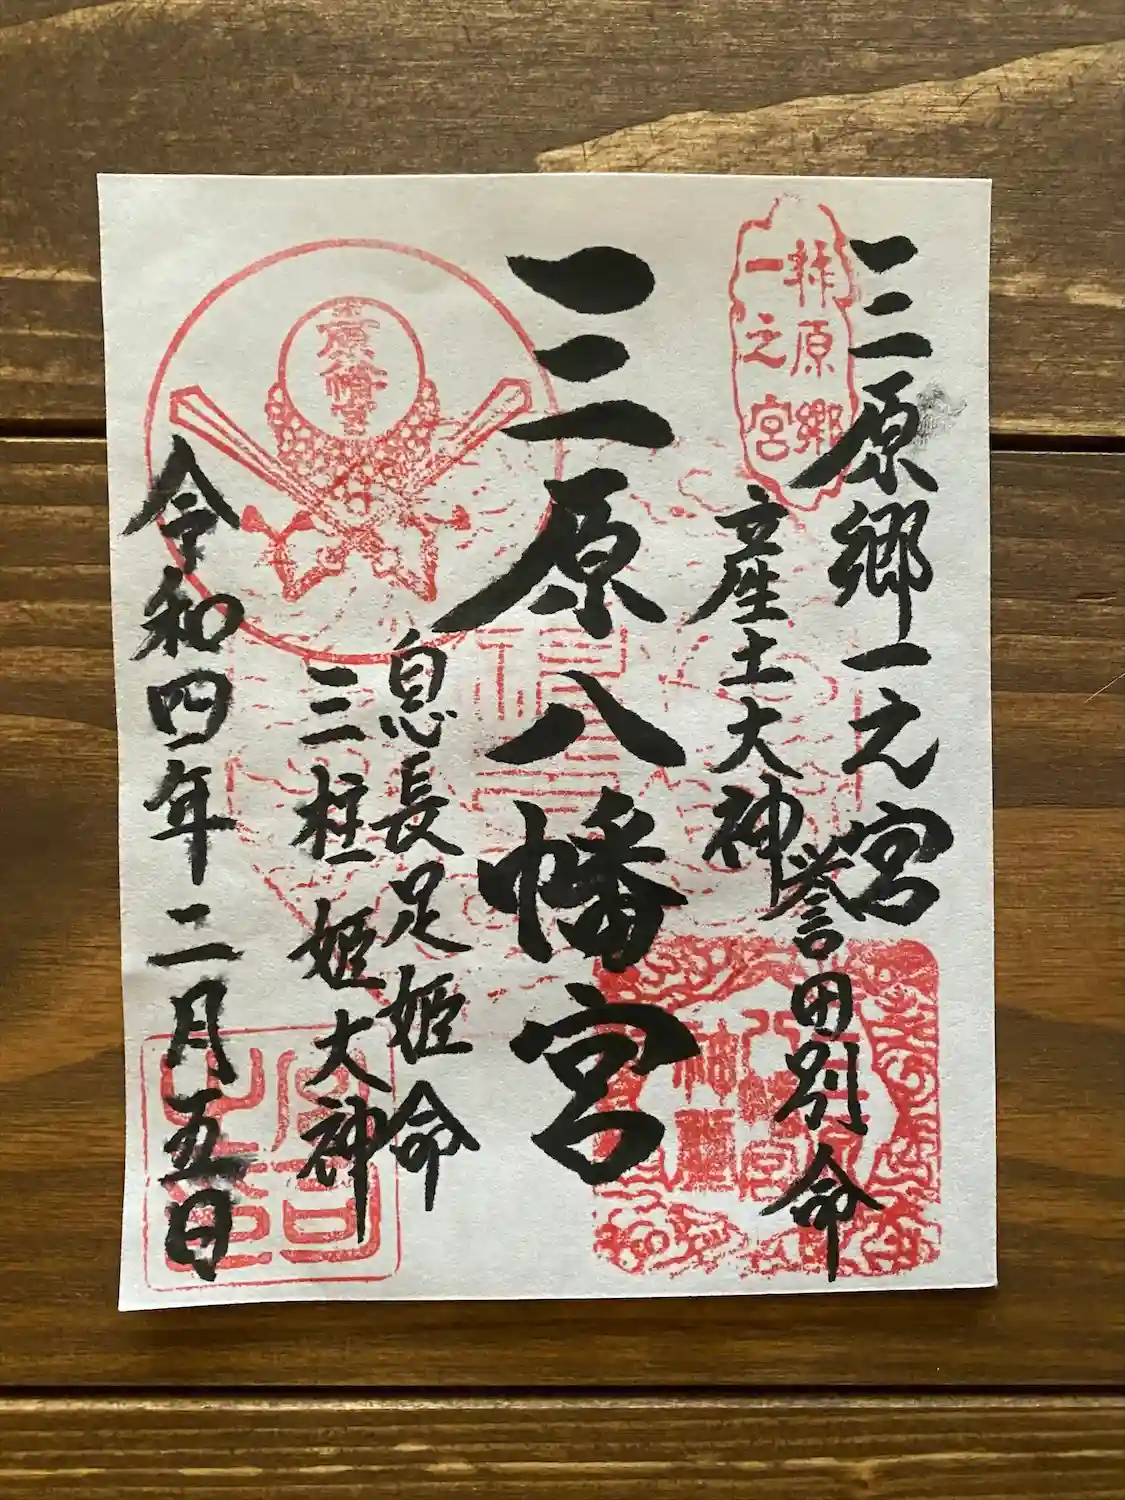 三原郷一之宮
一之宮
産土大神
誉田別命
三原八幡宮
息長足姫命
三柱姫大神
令和四年二月五日